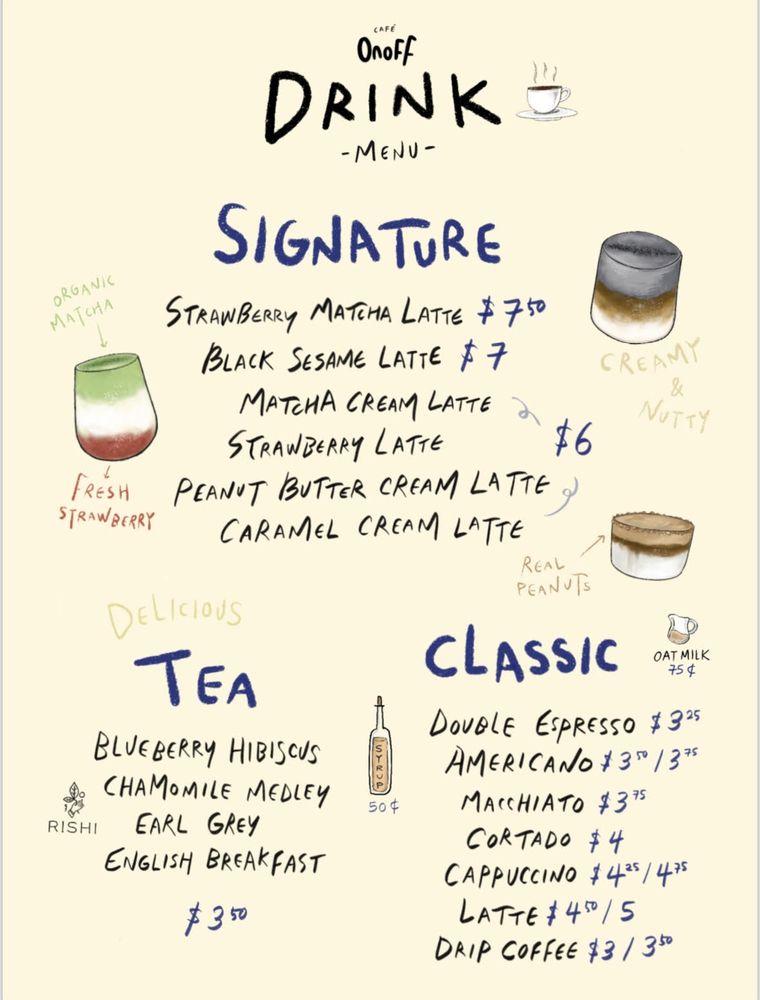 CAFÉ
Onoff
DRINK
-MENU-
SIGNATURE
ORGANIC
MATCHA
STRAWBERRY MATCHA LATTE $7.50
BLACK SESAME LATTE $7
MATCHA CREAM LATTE
STRAWBERRY LATTE
$6
PEANUT BUTTER CREAM LATTE
CARAMEL CREAM LATTE
CREAMY
&
NUTTY
FRESH
STRAWBERRY
REAL
PEANUTS
DELICIOUS
TEA
BLUEBERRY HIBISCUS
CHAMOMILE MEDLEY
EARL GREY
ENGLISH BREAKFAST
$3 50
RISHI
SYRUP
50¢
CLASSIC
OAT MILK
75¢
DOUBLE ESPRESSO $3 25
AMERICANO $3 50 / 3 75
MACCHIATO $3 75
CORTADO $4
CAPPUCCINO $4 25 / 4 75
LATTE $4 50 / 5
DRIP COFFEE $3 / 3 50